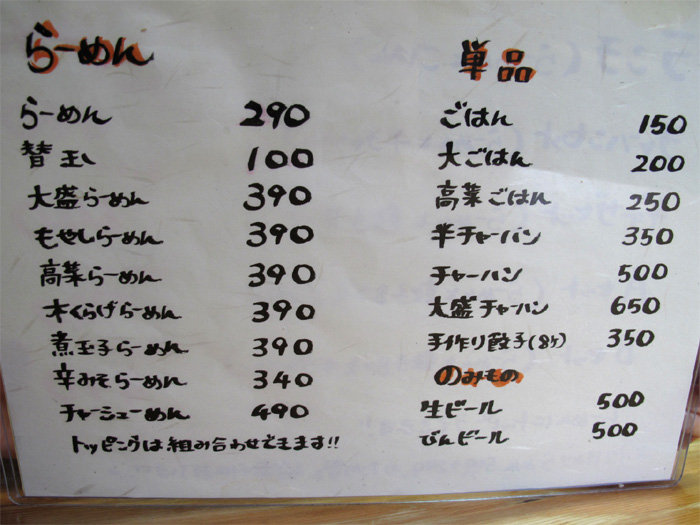 らーめん
らーめん 290
替玉 100
大盛らーめん 390
もやしらーめん 390
高菜らーめん 390
木くらげらーめん 390
煮玉子らーめん 390
辛みそらーめん 340
チャーシューめん 490
トッピングは組み合わせできます!!
単品
ごはん 150
大ごはん 200
高菜ごはん 250
半チャーハン 350
チャーハン 500
大盛チャーハン 650
手作り餃子(8ケ) 350
のみもの
生ビール 500
びんビール 500